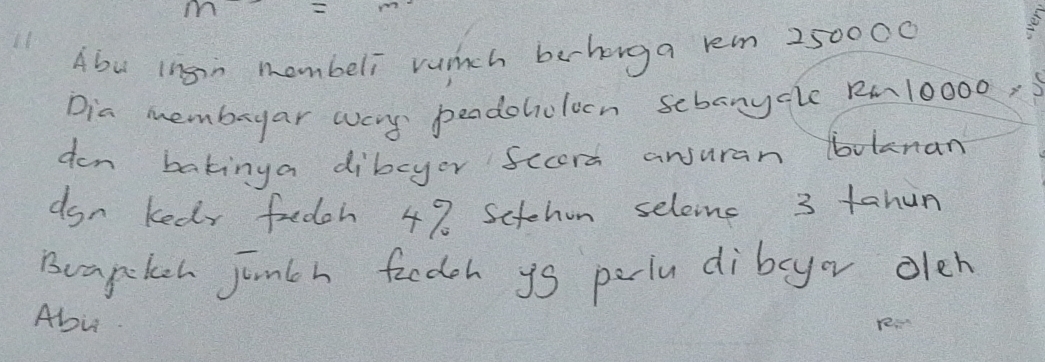 m = m
11
Abu ingin membeli rumah berharga rm 250000
Dia membayar wang pendahuluan sebanyak Rm10000 x 5
dan bakinya dibayar secara ansuran bulanan
dgn kadr faedah 4% setahun selama 3 tahun
Berapakah jumlah faedah yg perlu dibayar oleh
Abu.
Rm